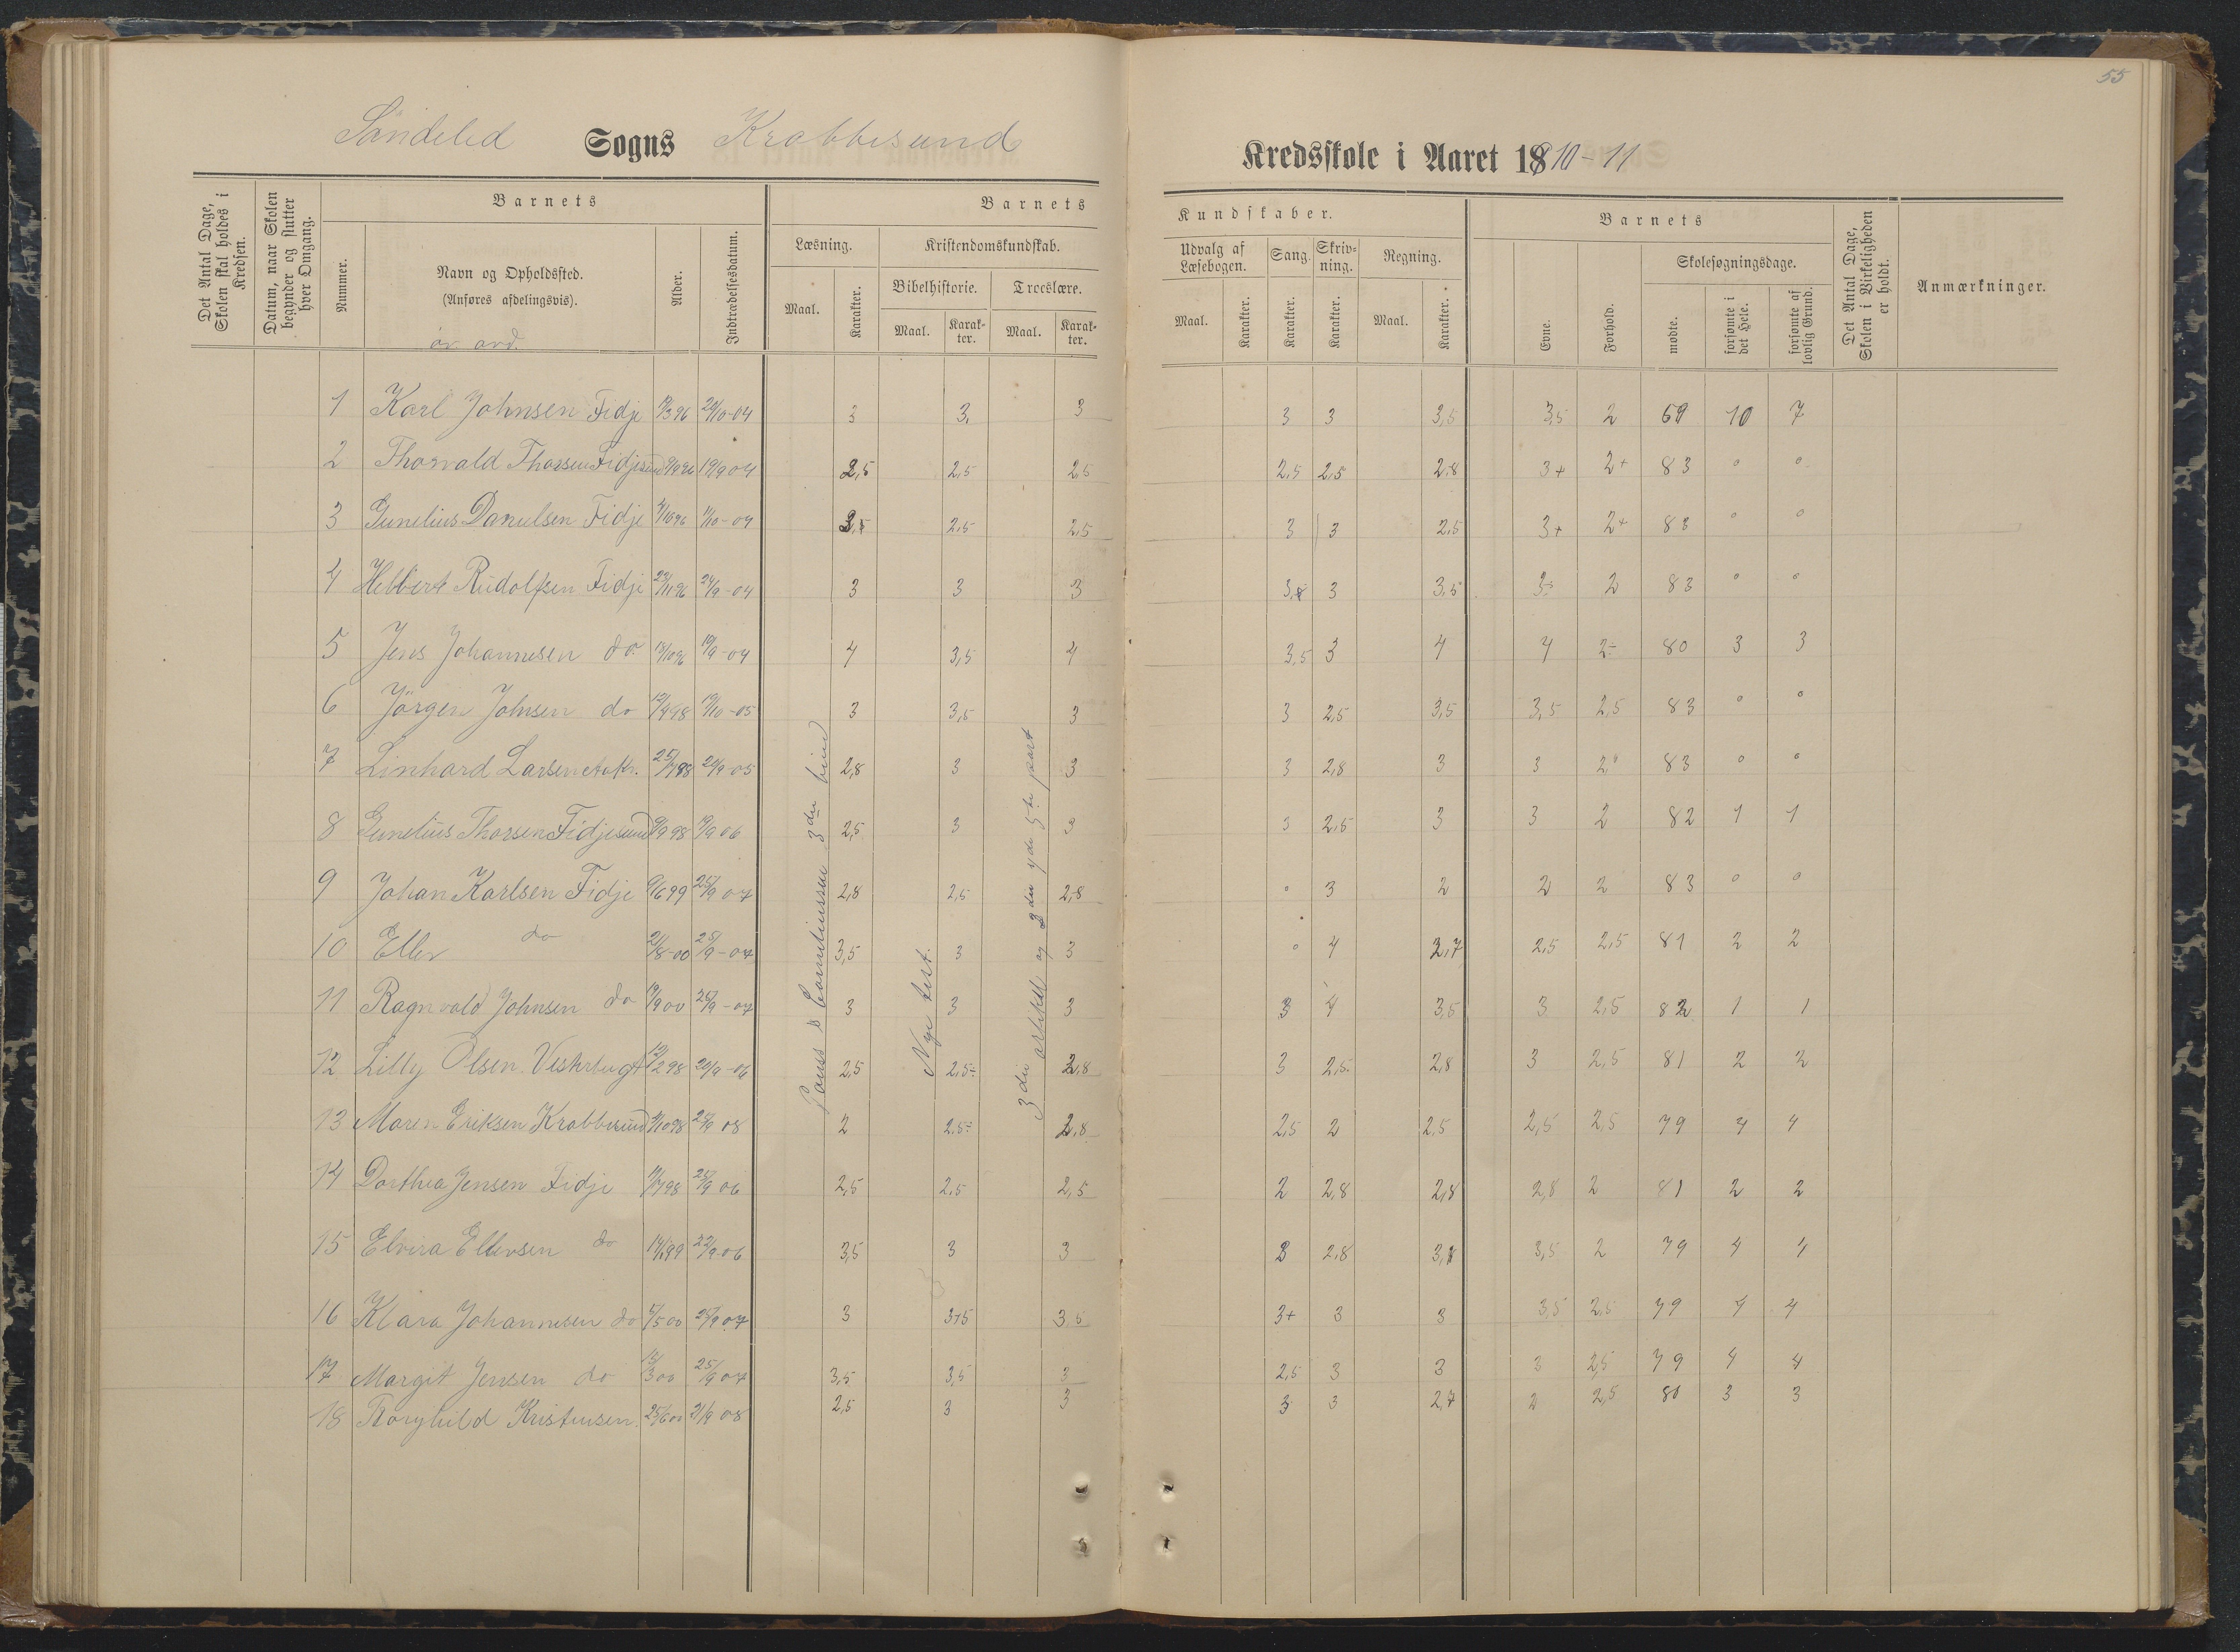 55
Söndeled Sogns Krabbesund Kredsskole i Aaret 1810-11
Det Antal Dage, Skolen skal holdes i Kredsen.
Datum, naar Skolen begynder og slutter hver Omgang.
Barnets
Nummer.
Navn og Opholdssted.
(Anføres afdelingsvis).
Alder.
Indtrædelsesdatum.
Barnets Kundskaber.
Læsning.
Maal. Karakter.
Kristendomskundskab.
Bibelhistorie. Troeslære.
Maal. Karakter. Maal. Karakter.
Udvalg af Læsebogen.
Maal. Karakter.
Sang.
Karakter.
Skrivning.
Karakter.
Regning.
Maal. Karakter.
Barnets
Evne.
Forhold.
Skolesøgningsdage.
mødte.
forsømte i det Hele.
forsømte af lovlig Grund.
Det Antal Dage, Skolen i Virkeligheden er holdt.
Anmærkninger.
1 Karl Johnsen Fidje 3 3, 3 3 3 3,5 3,5 2 69 10 7
2 Thorvald Thorsen Fidjesund 19/9 04 2,5 2,5 2,5 2,5 2,5 2,8 3+ 2+ 83 0 0
3 Gunelius Danielsen Fidje 2,5 2,5 3 3 2,5 3+ 2+ 83 0 0
4 Hebbert Rudolfsen Fidje 23/11 96 24/9-04 3 3 3 3 3,5 2 83 0 0
5 Jens Johannesen do 19/9-04 4 3,5 4 3,5 3 4 4 2÷ 80 3 3
6 Jörgen Johnsen do 12/4 98 3 3,5 3 3 2,5 3,5 3,5 2,5 83 0 0
7 Linhard Larsen 2,8 3 3 3 2,8 3 3 83 0 0
8 Gunelius Thorsen Fidjesund 2,5 3 3 3 2,5 3 3 2 82 1 1
9 Johan Karlsen Fidje 9/6 99 25/9 07 2,8 2,5 2,8 0 3 2 2 2 83 0 0
10 Ellev do 21/8-00 25/9-07 3,5 3 3 0 4 2,7 2,5 2,5 81 2 2
11 Ragnvald Johnsen do 25/9-07 3 3 3 3 4 3,5 3 2,5 82 1 1
12 Lilly Olsen Vesterbugt 12/2 98 2,5 2,5÷ 2,8 3 2,5 2,8 3 2,5 81 2 2
13 Maren Eriksen Krabbesund 2 2,5÷ 2,8 2,5 2 2,5 2,5 2,5 79 4 4
14 Dorthea Jensen Fidje 25/9 06 2,5 2,5 2,5 2 2,8 2,8 2,8 2 81 2 2
15 Elvira Ellevsen do 22/9-06 3,5 3 3 2,8 3,5 2 79 4 4
16 Klara Johannesen do 5/5 00 25/9 07 3 3,5 3+ 3 3 3,5 2,5 79 4 4
17 Margit Jensen do 25/9 07 3,5 3,5 3 2,5 3 3 3 2,5 79 4 4
18 Torghild Kristensen 25/6 00 21/9 08 2,5 3 3 3 3 2,7 2 2,5 80 3 3
3die bind
Nye test.
3die artikel og 4de 5te part